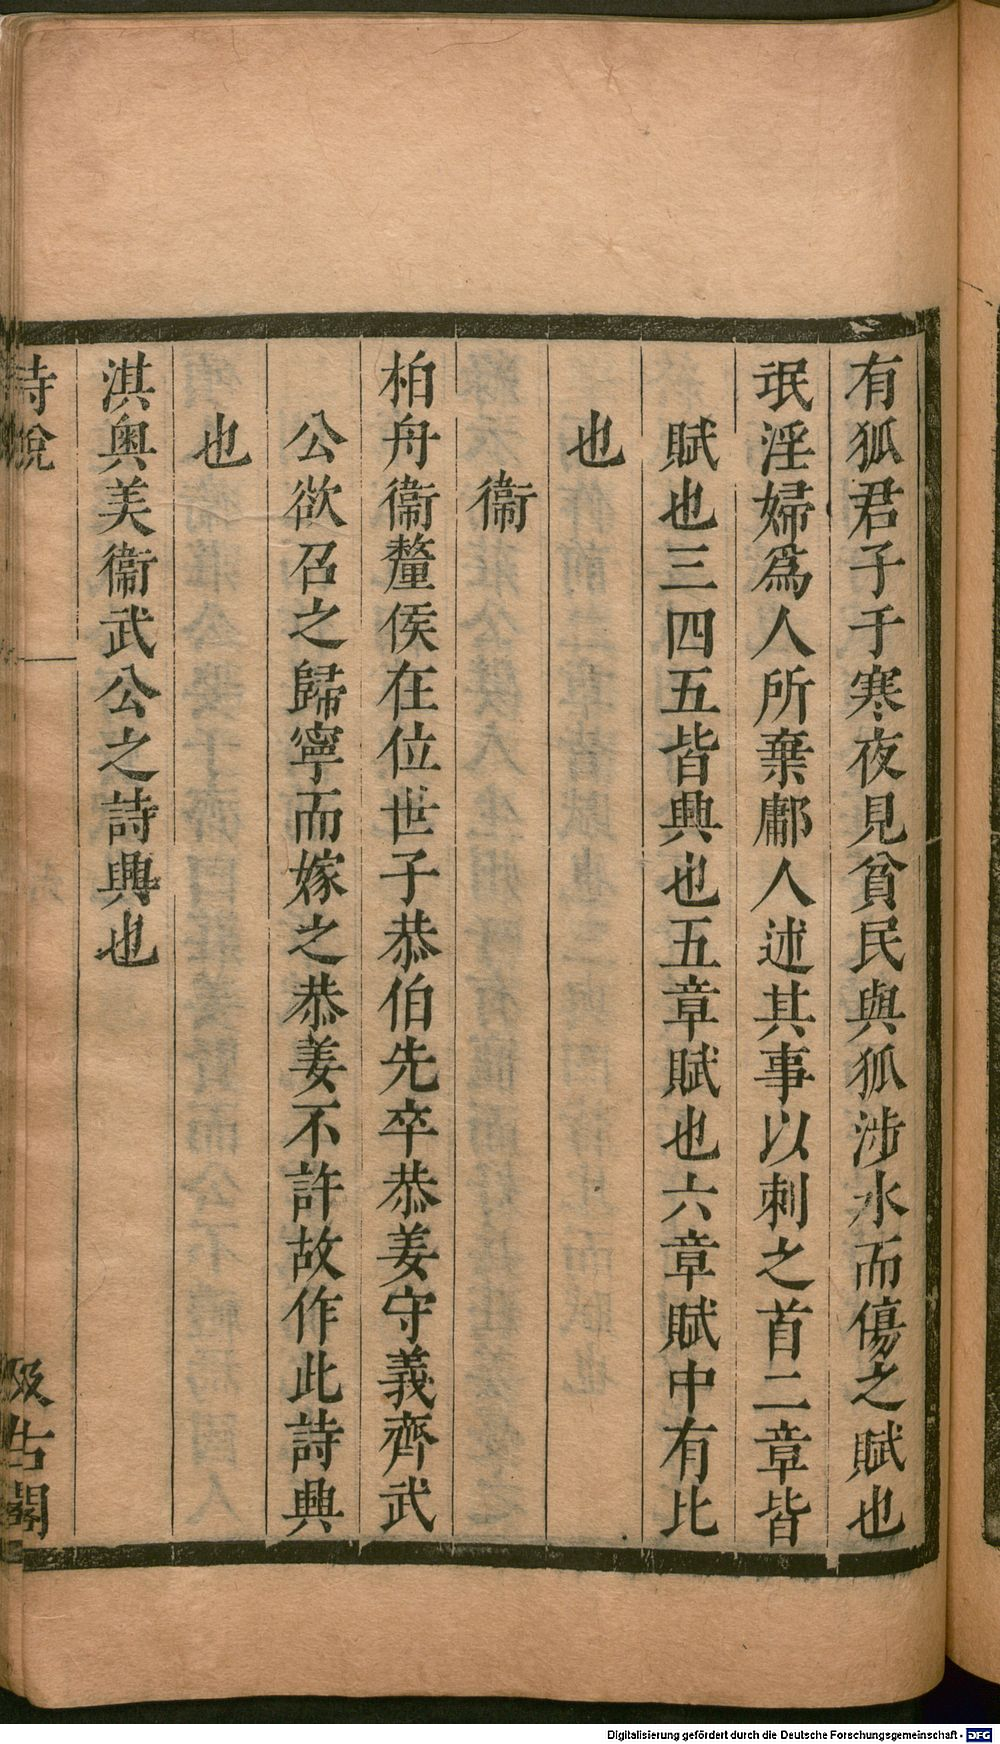 有狐君子于寒夜見貧民與狐涉水而傷之賦也
氓淫婦爲人所棄鄘人述其事以刺之首二章皆
賦也三四五皆興也五章賦也六章賦中有比
也
衞
柏舟衞釐侯在位世子恭伯先卒恭姜守義齊武
公欲召之歸寧而嫁之恭姜不許故作此詩興
也
淇奧美衞武公之詩興也
詩說
汲古閣
Digitalisierung gefördert durch die Deutsche Forschungsgemeinschaft - DFG